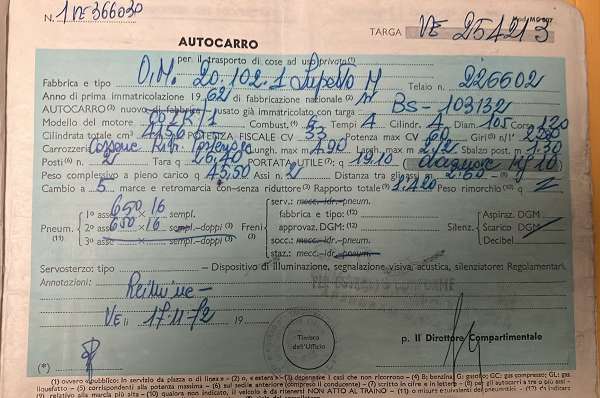 N. 1VE366030
Mod. MC 807
TARGA VE 254213
AUTOCARRO
per il trasporto di cose ad uso privato(¹)
Fabbrica e tipo O.M. 20.102.1 Lupetto M Telaio n. 226602
Anno di prima immatricolazione 1962 di fabbricazione nazionale (²)
AUTOCARRO(³) nuovo di fabbrica-usato già immatricolato con targa BS-103132
Modello del motore Combust. (⁴) Tempi 4 Cilindr. 4 Diam. 105 Corsa 120
Cilindrata totale cm³ 4156 POTENZA FISCALE CV 33 Potenza max CV Giri (⁵) n/1'
Carrozzeria Lungh. max m 4.90 Largh. max m Sbalzo post. m 1.30
Posti (⁶) n. 2 Tara q 26,40 PORTATA UTILE(⁷): q 19.10
Peso complessivo a pieno carico q 45,50 Assi n. 2 Distanza tra gli assi m 2.60
Cambio a 5 marce e retromarcia con-senza riduttore(³) Rapporto totale(⁹) 1:420 Peso rimorchio (¹⁰) q
Pneum. (11)
1º asse 650 × 16 sempl.
2º asse 650 × 16 sempl.-doppi (³)
3º asse sempl.-doppi (³)
Freni (³)
serv.: mecc.-idr.-pneum.
fabbrica e tipo: (¹²)
approvaz. DGM: (¹²)
socc.: mecc.-idr.-pneum.
staz.: mecc.-idr.-pneum.
Silenz.
Aspiraz. DGM
Scarico DGM
Decibel
Servosterzo: tipo — Dispositivo di illuminazione, segnalazione visiva, acustica, silenziatore: Regolamentari.
Annotazioni:
VE li 17-11-72 19
Timbro dell'Ufficio
p. Il Direttore Compartimentale
(*)
(1) ovvero «pubblico: in servizio da piazza o di linea» - (2) o, «estera» - (3) depennare i casi che non ricorrono - (4) B: benzina; G: gasolio; GC: gas compresso; GL: gas
liquefatto - (5) corrispondenti alla potenza massima - (6) sul sedile anteriore (compreso il conducente) - (7) scritto in cifre e in lettere - (8) per gli autocarri a tre o più assi -
(9) relativo alla marcia più alta - (10) qualora non indicato, il veicolo è da ritenersi NON ATTO AL TRAINO - (11) o misure equivalenti dei pneumatici